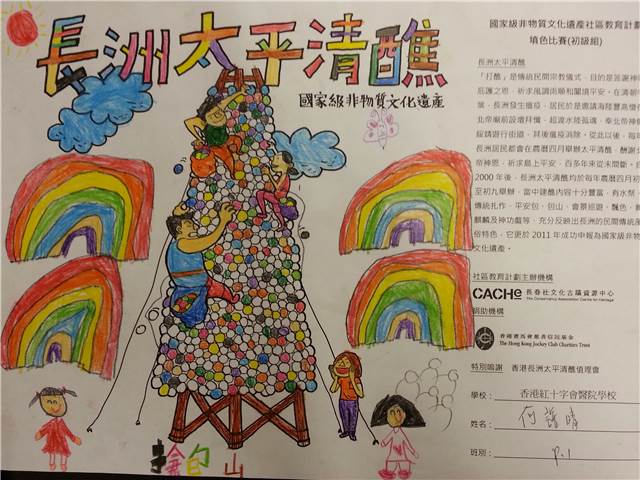 長洲太平清醮
國家級非物質文化遺產
搶包山
國家級非物質文化遺產社區教育計劃
填色比賽(初級組)
長洲太平清醮
「打醮」是傳統民間宗教儀式，目的是答謝神
庇護之恩，祈求風調雨順和闔境平安。在清朝
葉，長洲發生瘟疫，居民於是邀請海陸豐高僧
北帝廟前設壇拜懺，超渡水陸孤魂，奉北帝神
綏靖遊行街道，其後瘟疫消除。從此以後，每年
長洲居民都會在農曆四月舉辦太平清醮，酬謝
帝神恩，祈求島上平安，百多年來從未間斷。
2000 年後，長洲太平清醮均於每年農曆四月初
至初九舉辦，當中建醮內容十分豐富，有水祭
傳統扎作、平安包、包山、會景巡遊、飄色、
麒麟及神功戲等，充分反映出長洲的民間傳統風
俗特色。它更於 2011 年成功申報為國家級非物
文化遺產。
社區教育計劃主辦機構
CACHe 長春社文化古蹟資源中心
The Conservancy Association Centre for Heritage
捐助機構
香港賽馬會慈善信託基金
The Hong Kong Jockey Club Charities Trust
特別鳴謝 香港長洲太平清醮值理會
學校： 香港紅十字會醫院學校
姓名： 何 晴
班別： P.1